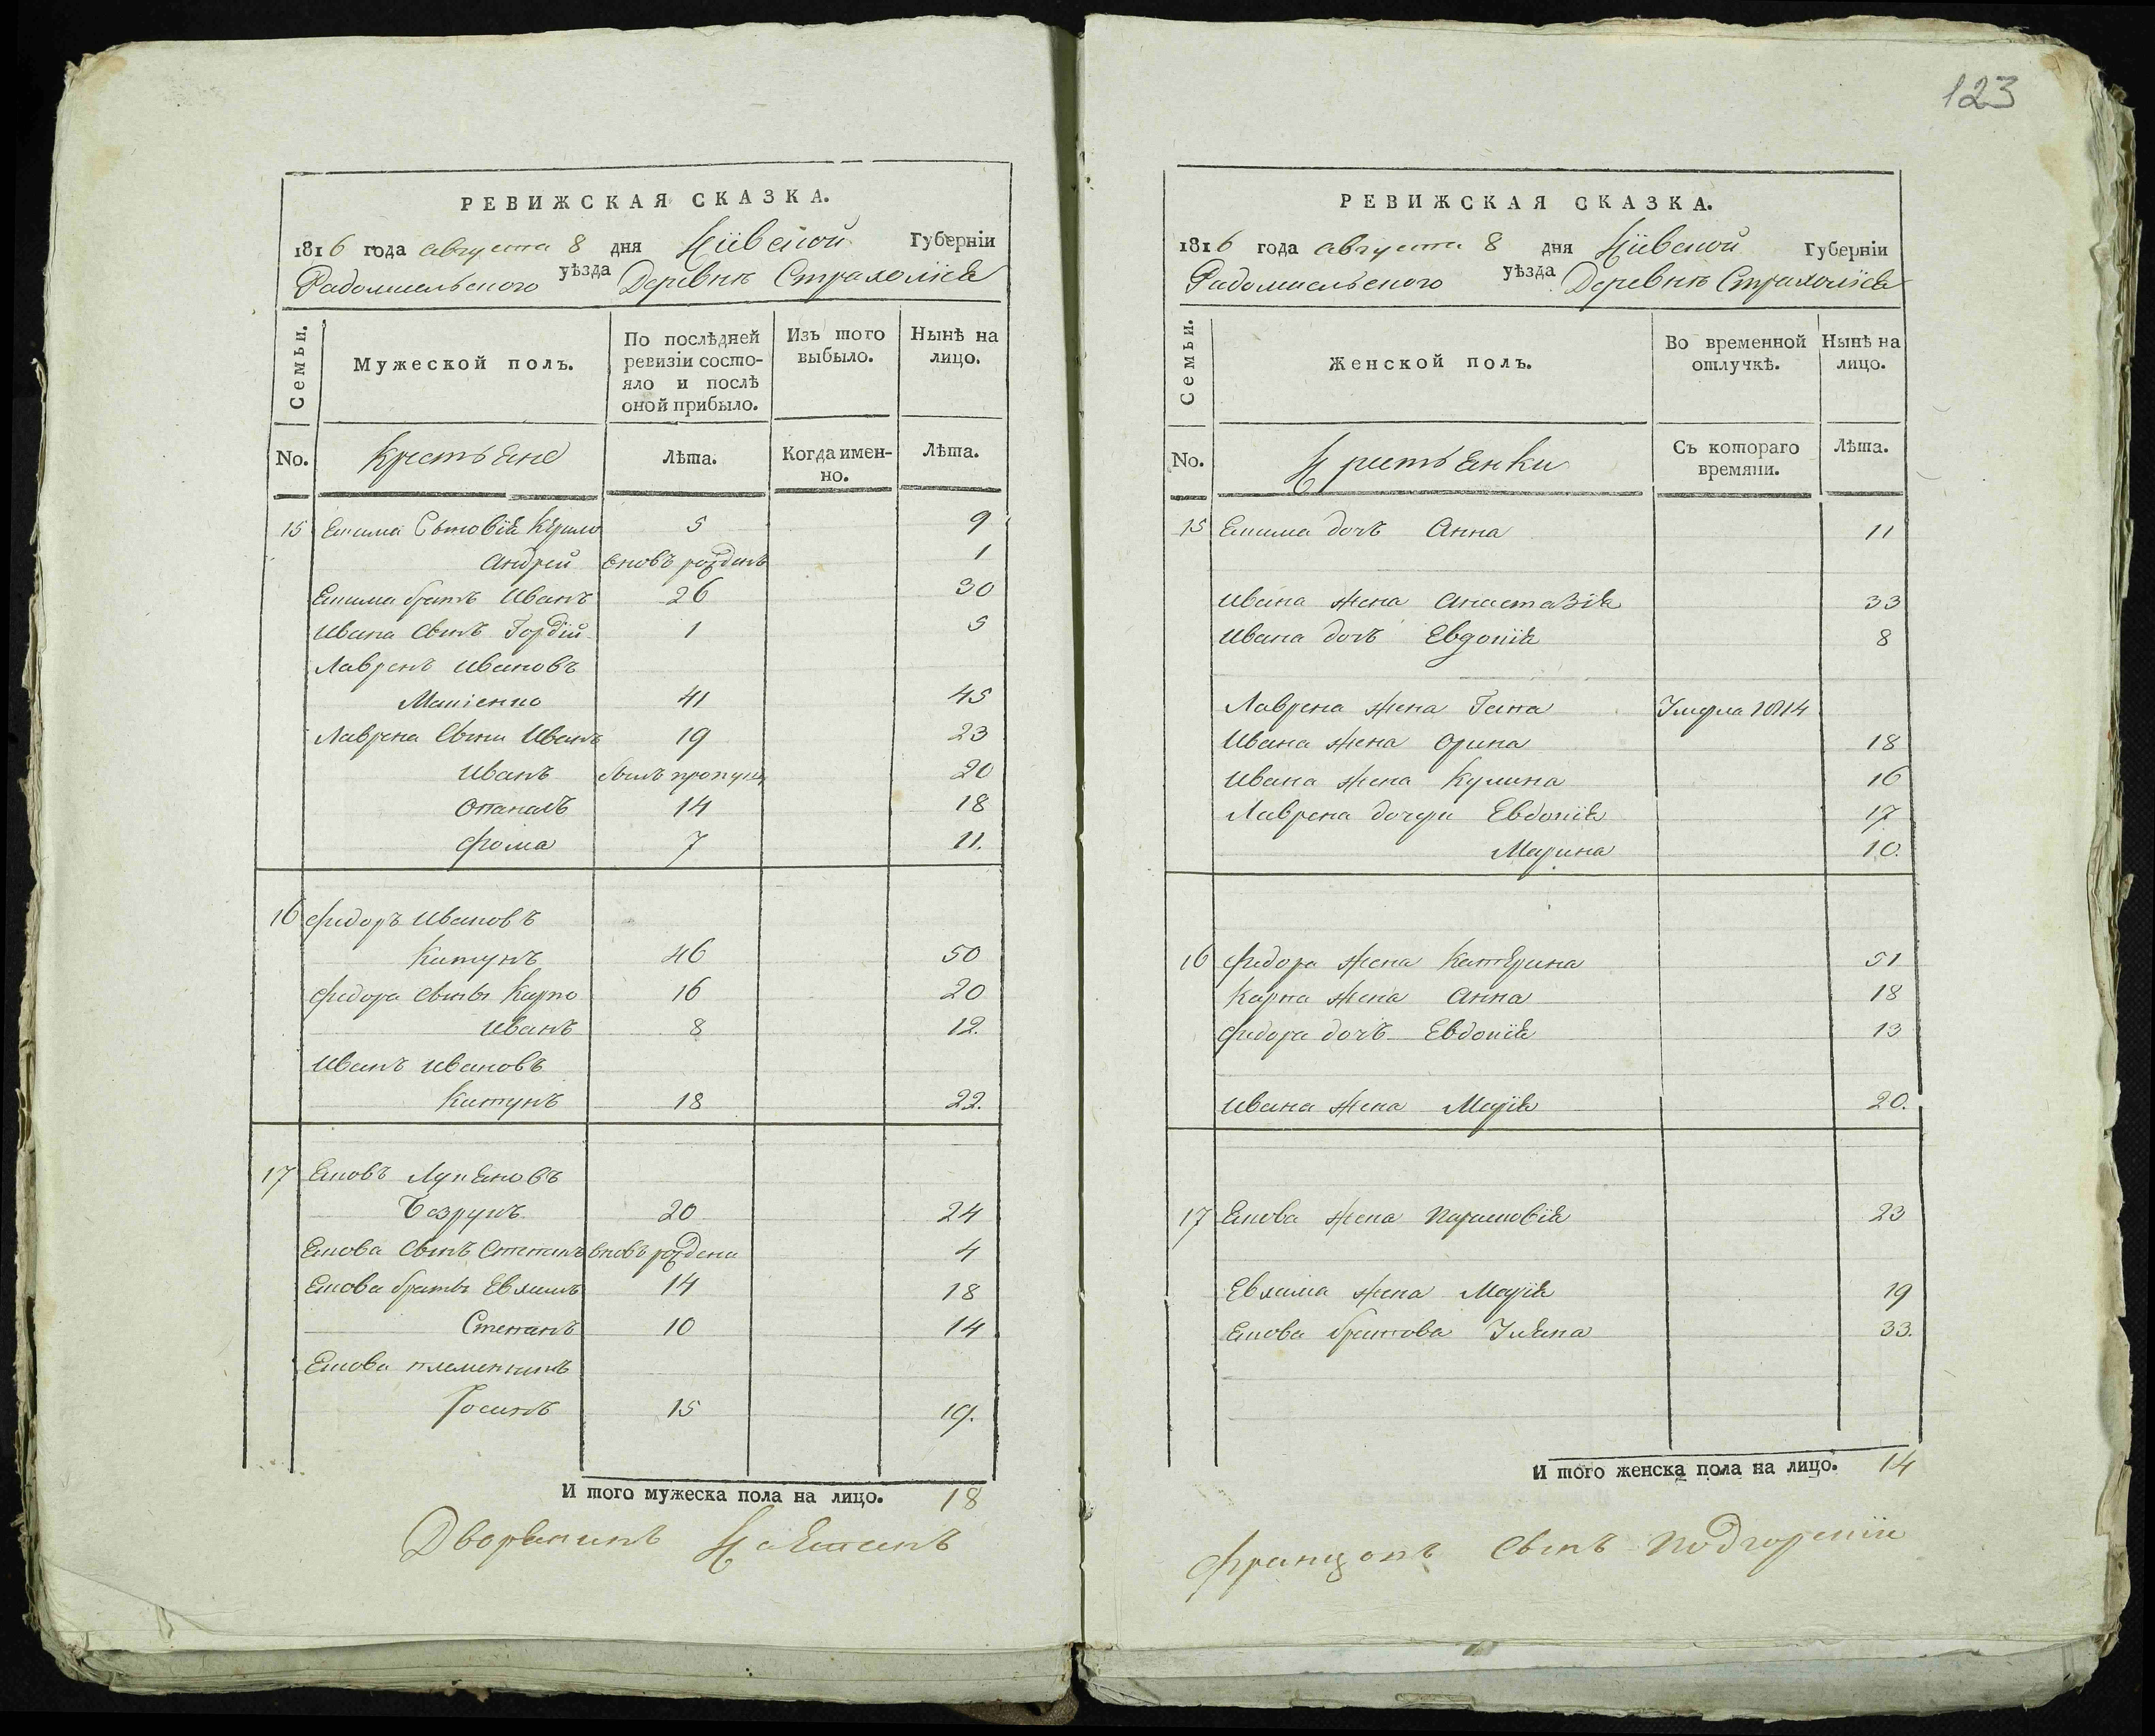 123
РЕВИЖСКАЯ СКАЗКА.
1816 года августа 8 дня Кіевской Губерніи
Радомысльского уѣзда Деревнѣ Страхолѣся
Семьи.
Мужеской полъ.
По послѣдней ревизіи состо-
яло и послѣ
оной прибыло.
Изъ того выбыло.
Нынѣ на лицо.
No. Крестьяне Лѣта. Когда имен-
но. Лѣта.
15 Кирило 5 9
Андрей вновь рожденъ 1
братъ Иванъ 26 30
Ивана сынъ Гордій 1 5
Лавренъ Ивановъ
41 45
Лаврена сыны Иванъ 19 23
Иванъ былъ пропущ 20
Опанасъ 14 18
Фома 7 11.
16 Федоръ Ивановъ
Китунъ 46 50
Федора сыны Карпо 16 20
Иванъ 8 12.
Иванъ Ивановъ
Китунъ 18 22.
17 Яковъ Лукяновъ
Безрукъ 20 24
Якова сынъ Степанъ вновь рождени 4
Якова браты Евхимъ 14 18
Степанъ 10 14
Якова племенникъ
15 19.
И того мужеска пола на лицо. 18
Дворянинъ
РЕВИЖСКАЯ СКАЗКА.
1816 года августа 8 дня Кіевской Губерніи
Радомысльского уѣзда Деревнѣ Страхолѣся
Семьи.
Женской полъ.
Во временной отлучкѣ.
Нынѣ на лицо.
No. Крестьянки Съ котораго времяни. Лѣта.
15 дочъ Анна 11
Ивана жена Анастазія 33
Ивана дочъ Евдокія 8
Лаврена жена Ганна Умерла 1814
Ивана жена Орина 18
Ивана жена Кулина 16
Лаврена дочери Евдокія 17
Марина 10.
16 Федора жена Катерина 51
Карпа жена Анна 18
Федора дочъ Евдокія 13
Ивана жена Марія 20.
17 Якова жена Парасковія 23
Евхима жена Марія 19
Якова братова Уляна 33.
И того женска пола на лицо. 14
сынъ